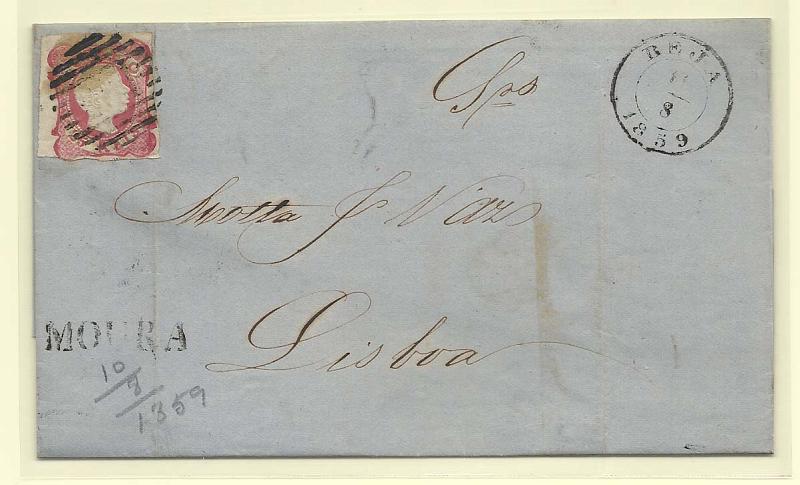 BEJA
8
1859
Snrs
Motta & Vaz
Lisboa
MOURA
10/8/1859